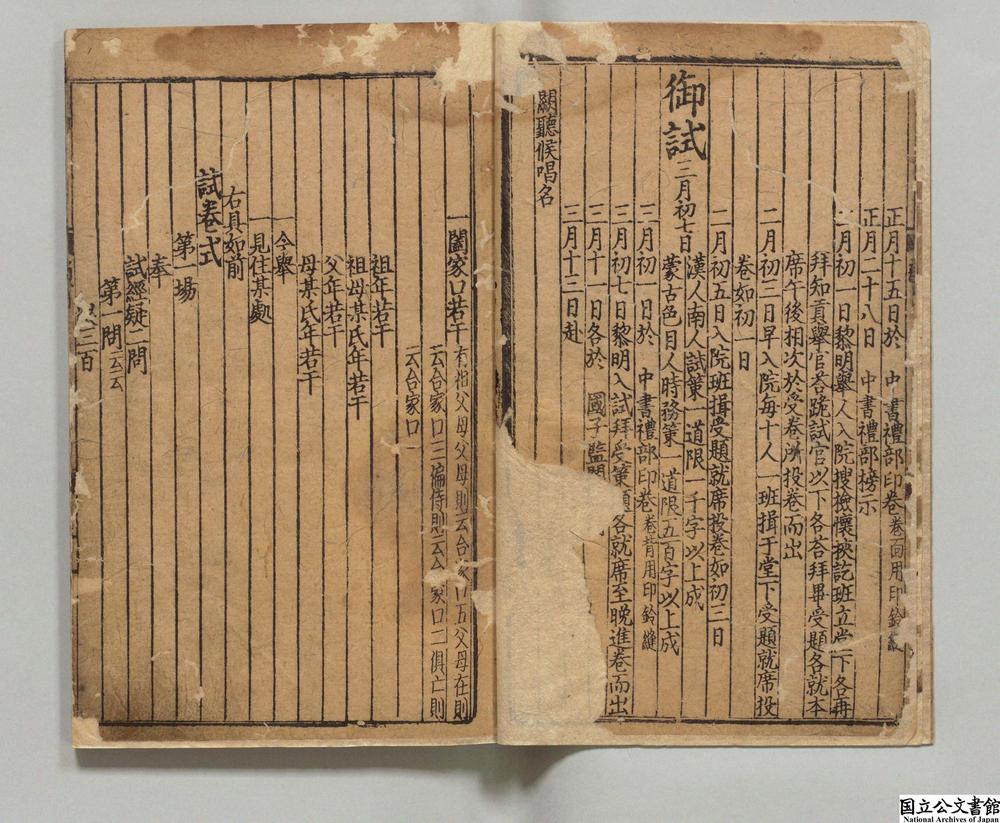 正月十五日於 中書禮部印卷卷面用印鈐縫
正月二十八日 中書禮部榜示
二月初一日黎明舉人入院搜撿懷挾訖班立堂下各再
拜知貢舉官荅跪試官以下各荅拜畢受題各就本
席午後相次於受卷所投卷而出
二月初三日早入院每十人一班揖于堂下受題就席投
卷如初一日
二月初五日入院班揖受題就席投卷如初三日
御試三月初七日漢人南人試策一道限一千字以上成
蒙古色目人時務策一道限五百字以上成
三月初一日於 中書禮部印卷卷背用印鈐縫
三月初七日黎明入試拜受策題各就席至晚進卷而出
三月十一日各於 國子監
三月十三日赴
闕聽候唱名
一闔家口若干有祖父母父母則云合家口五父母在則
云合家口三偏侍則云合家口二俱亡則
云合家口一
祖年若干
祖母某氏年若干
父年若干
母某氏年若干
一今舉
一見住某處
右具如前
試卷式
第一場
奉
試經疑二問
第一問云云
三百
国立公文書館
National Archives of Japan